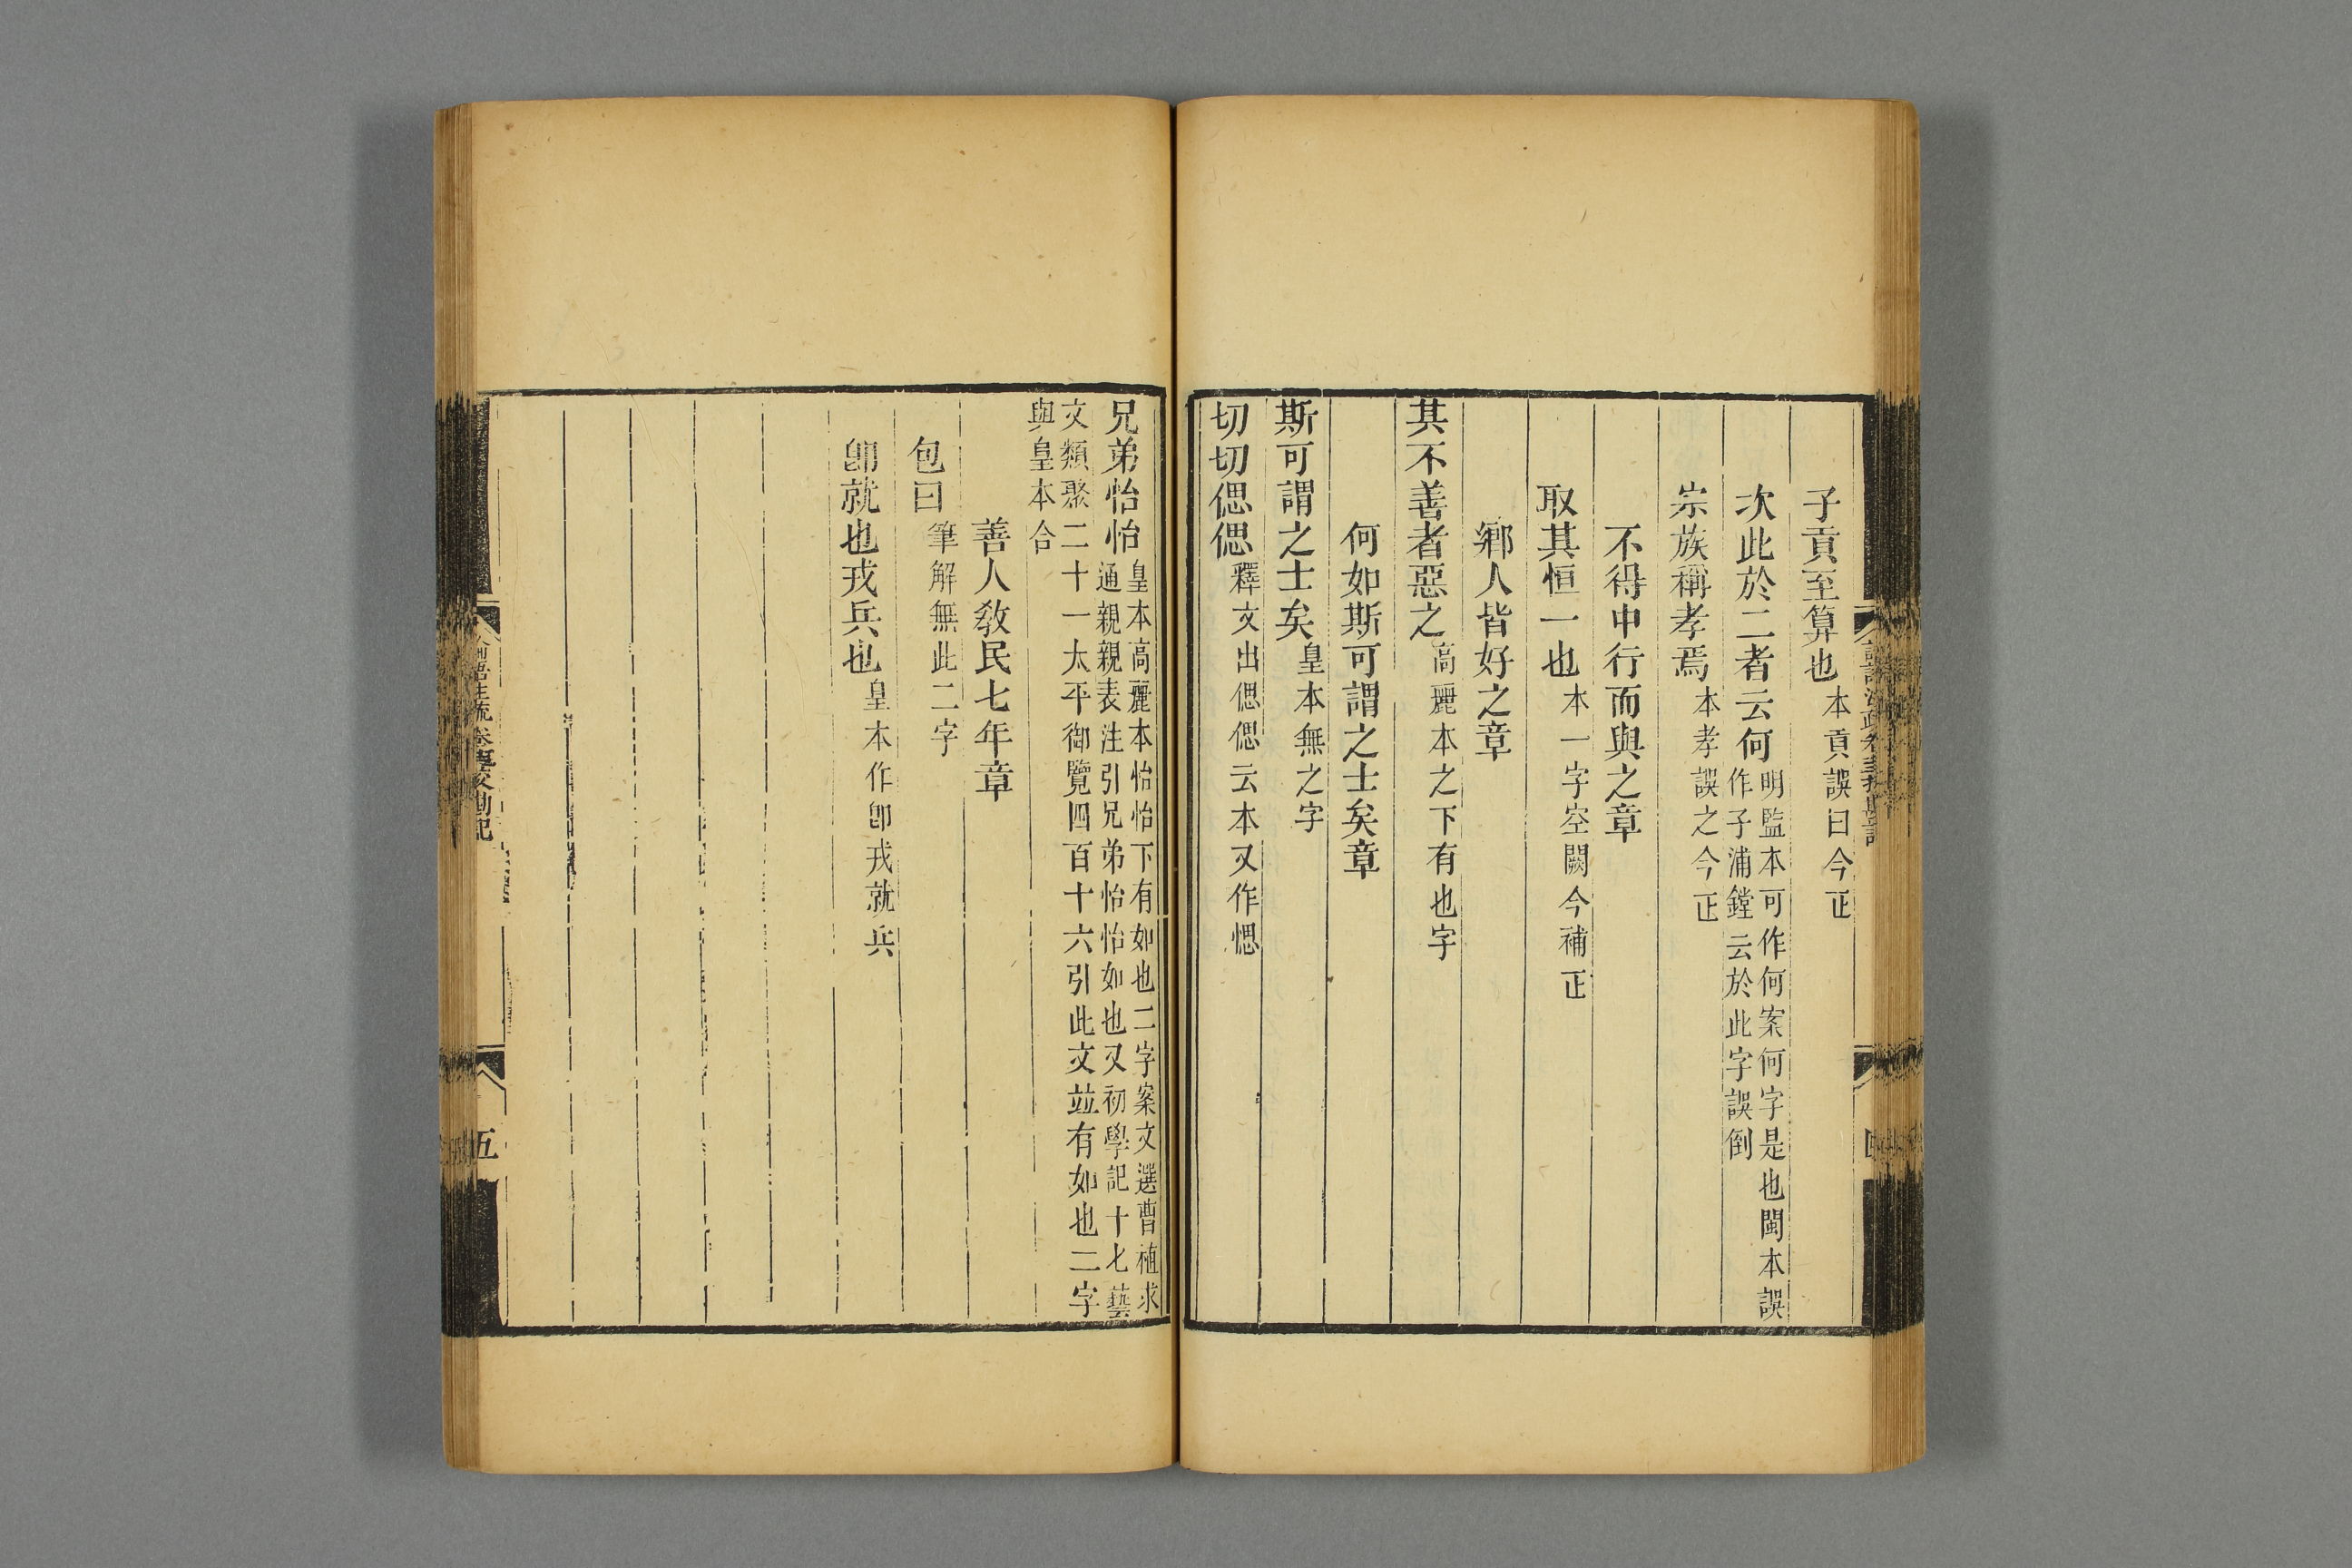 子貢至算也本貢誤曰今正
次此於二者云何明監本可作何案何字是也閩本誤
作子浦鏜云於此字誤倒
宗族稱孝焉本孝誤之今正
不得中行而與之章
取其恒一也本一字空闕今補正
鄉人皆好之章
其不善者惡之高麗本之下有也字
何如斯可謂之士矣章
斯可謂之士矣皇本無之字
切切偲偲釋文出偲偲云本又作愢
兄弟怡怡皇本高麗本怡怡下有如也二字案文選曹植求
通親親表注引兄弟怡怡如也又初學記十七藝
文類聚二十一太平御覽四百十六引此文並有如也二字
與皇本合
善人敎民七年章
包曰筆解無此二字
卽就也戎兵也皇本作卽戎就兵
五